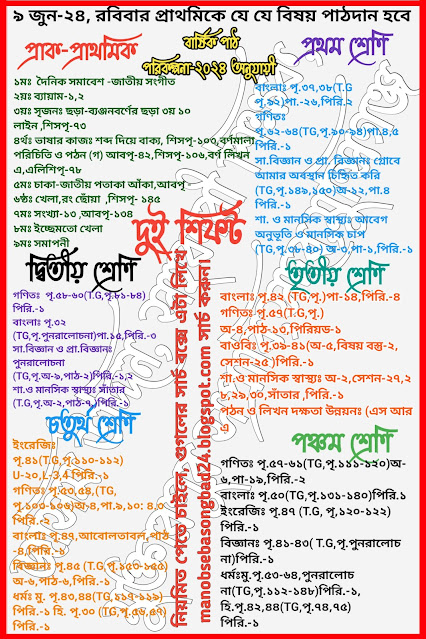 ৯ জুন-২৪, রবিবার প্রাথমিকে যে যে বিষয় পাঠদান হবে
প্রাক-প্রাথমিক
বার্ষিক পাঠ
পরিকল্পনা-২০২৪ অনুযায়ী
প্রথম শ্রেণি
১মঃ দৈনিক সমাবেশ -জাতীয় সংগীত
২য়ঃ ব্যায়াম-১,২
৩য়ঃ সৃজনঃ ছড়া-ব্যঞ্জনবর্ণের ছড়া ৩য় ১০
লাইন ,শিসপৃ-৭৩
৪র্থঃ ভাষার কাজঃ শব্দ দিয়ে বাক্য, শিসপৃ-১০৩,বর্ণমালা
পরিচিতি ও পঠন (গ) আবপৃ-৪২,শিসপৃ-১০৬,বর্ণ লিখন
এ,এলিশিপৃ-৭৮
৫মঃ চাকা-জাতীয় পতাকা আঁকা,আবপৃ
৬ষ্ঠঃ খেলা,রং ছোঁয়া ,শিসপৃ- ১৪৫
৭মঃ সংখ্যা-১০,আবপৃ-১৩৪
৮মঃ ইচ্ছেমতো খেলা
৯মঃ সমাপনী
বাংলাঃ পৃ.৩৭,৩৮(T.G
পৃ.৯২)পা.-২৬,পিরি.২
গণিতঃ
পৃ.৬২-৬৪(TG,পৃ.৯০-৯৪)পা.৪,৫
পিরি.-১
সা.বিজ্ঞান ও প্রা. বিজ্ঞানঃ গ্লোবে
আমার অবস্থান চিহ্নিত করি
(TG,পৃ.১৪৯,১৫০)অ-১২,পা.৪
পিরি.-১
শা. ও মানসিক স্বাস্থ্যঃ আবেগ
অনুভূতি ও মানসিক চাপ
(TG,পৃ.৩৮-৪০) অ-৩,পা-১,পিরি.-১
দুই শিফট
দ্বিতীয় শ্রেণি
গণিতঃ পৃ.৫৮-৬০(T.G,পৃ.৮১-৮৪)
পিরি.-১
বাংলাঃ পৃ.৩২
(TG,পৃ.পুনরালোচনা)পা.১৫,পিরি.-৩
সা.বিজ্ঞান ও প্রা.বিজ্ঞানঃ
পুনরালোচনা
(TG,পৃ.অ-৯,পাঠ-২)পিরি.-১,২
শা.ও মানসিক স্বাস্থ্যঃ সাঁতার
(T.G,পৃ.অ-২,পাঠ-৭,)পিরি.-১
তৃতীয় শ্রেণি
বাংলাঃ পৃ.৪২ (TG,পৃ.)পা-১৪,পিরি.-৪
গণিতঃ পৃ.৫৯(T.G,পৃ.)
অ-৪,পাঠ-১৩,পিরিয়ড-১
বাওবিঃ পৃ.৩৯-৪১(অ-৫,বিষয় বস্তু-২,
সেশন-২৫ )পিরি.-১
শা.ও মানসিক স্বাস্থ্যঃ অ-২,সেশন-২৭,২
৮,২৯,৩০,সাঁতার ,পিরি.-১
পঠন ও লিখন দক্ষতা উন্নয়নঃ (এস আর
এ
চতুর্থ শ্রেণি
ইংরেজিঃ
পৃ.৪১(T.G,পৃ.১১০-১১২)
U-20,L-3,4 পিরি.-১
গণিতঃ পৃ.৫৩,৫৪,(TG,
পৃ.১০৩-১০৬)অ-৪,পা.৯,১০: ৪.৩
পিরি.-২
বাংলাঃ পৃ.৪৭,আবোলতাবল,পাঠ
-৪,পিরি.-১
বিজ্ঞানঃ পৃ.৪৫ (T.G,পৃ.১৫৩-১৫৫)
অ-৬,পাঠ-৬,পিরি.-১
ধর্মঃ মু. পৃ.৪৩,৪৪(TG,১১৭-১১৯)
পিরি.-১ হি. পৃ.৩০ (TG,পৃ.৫৬,৫৭)
পিরি.-১
নিয়মিত পেতে চাইলে, গুগলের সার্চ বক্সে এটা লিখে
manobsebasongbad24.blogspot.com সার্চ করুন।
পঞ্চম শ্রেণি
গণিতঃ পৃ.৫৭-৬১(TG,পৃ.১১১-১২০)অ-
৬,পা-১৯,পিরি.-২
বাংলাঃ পৃ.৫০(TG,পৃ.১৩১-১৪০)পিরি.১
ইংরেজিঃ পৃ.৪৭ (T.G, পৃ,১২০-১২২)
পিরি.-১
বিজ্ঞানঃ পৃ.৪১-৪৩( T.G,পৃ.পুনরালোচ
না)পিরি.-১
ধর্মঃমু.পৃ.৫৩-৬৪,পুনরালোচ
না(TG,পৃ.১১২-১৪৮)পিরি.-১,
হি.পৃ.৪২,৪৪(TG,পৃ.৭৪,৭৫)
পিরি.-১